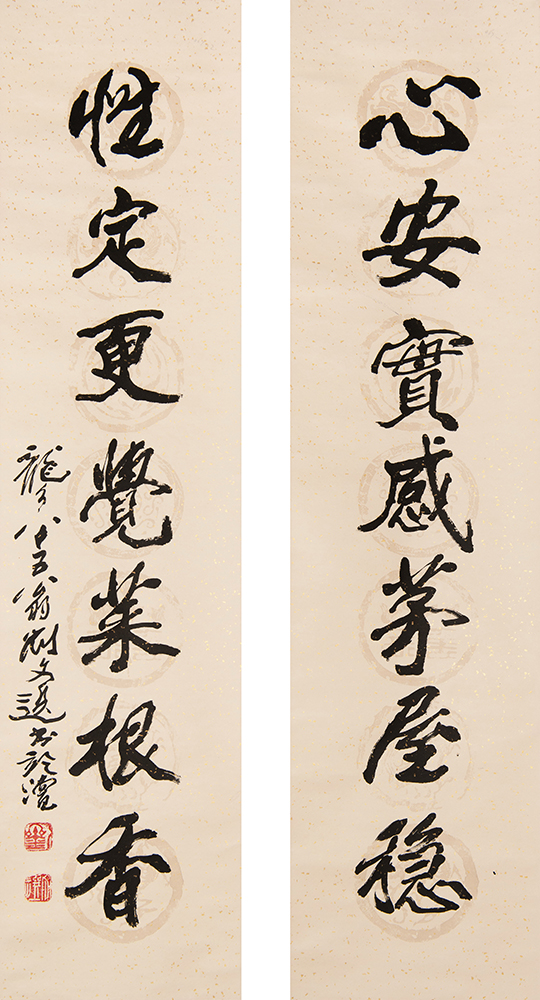 心安實感茅屋穩
性定更覺菜根香
龍子八十五翁劉文選書於澧